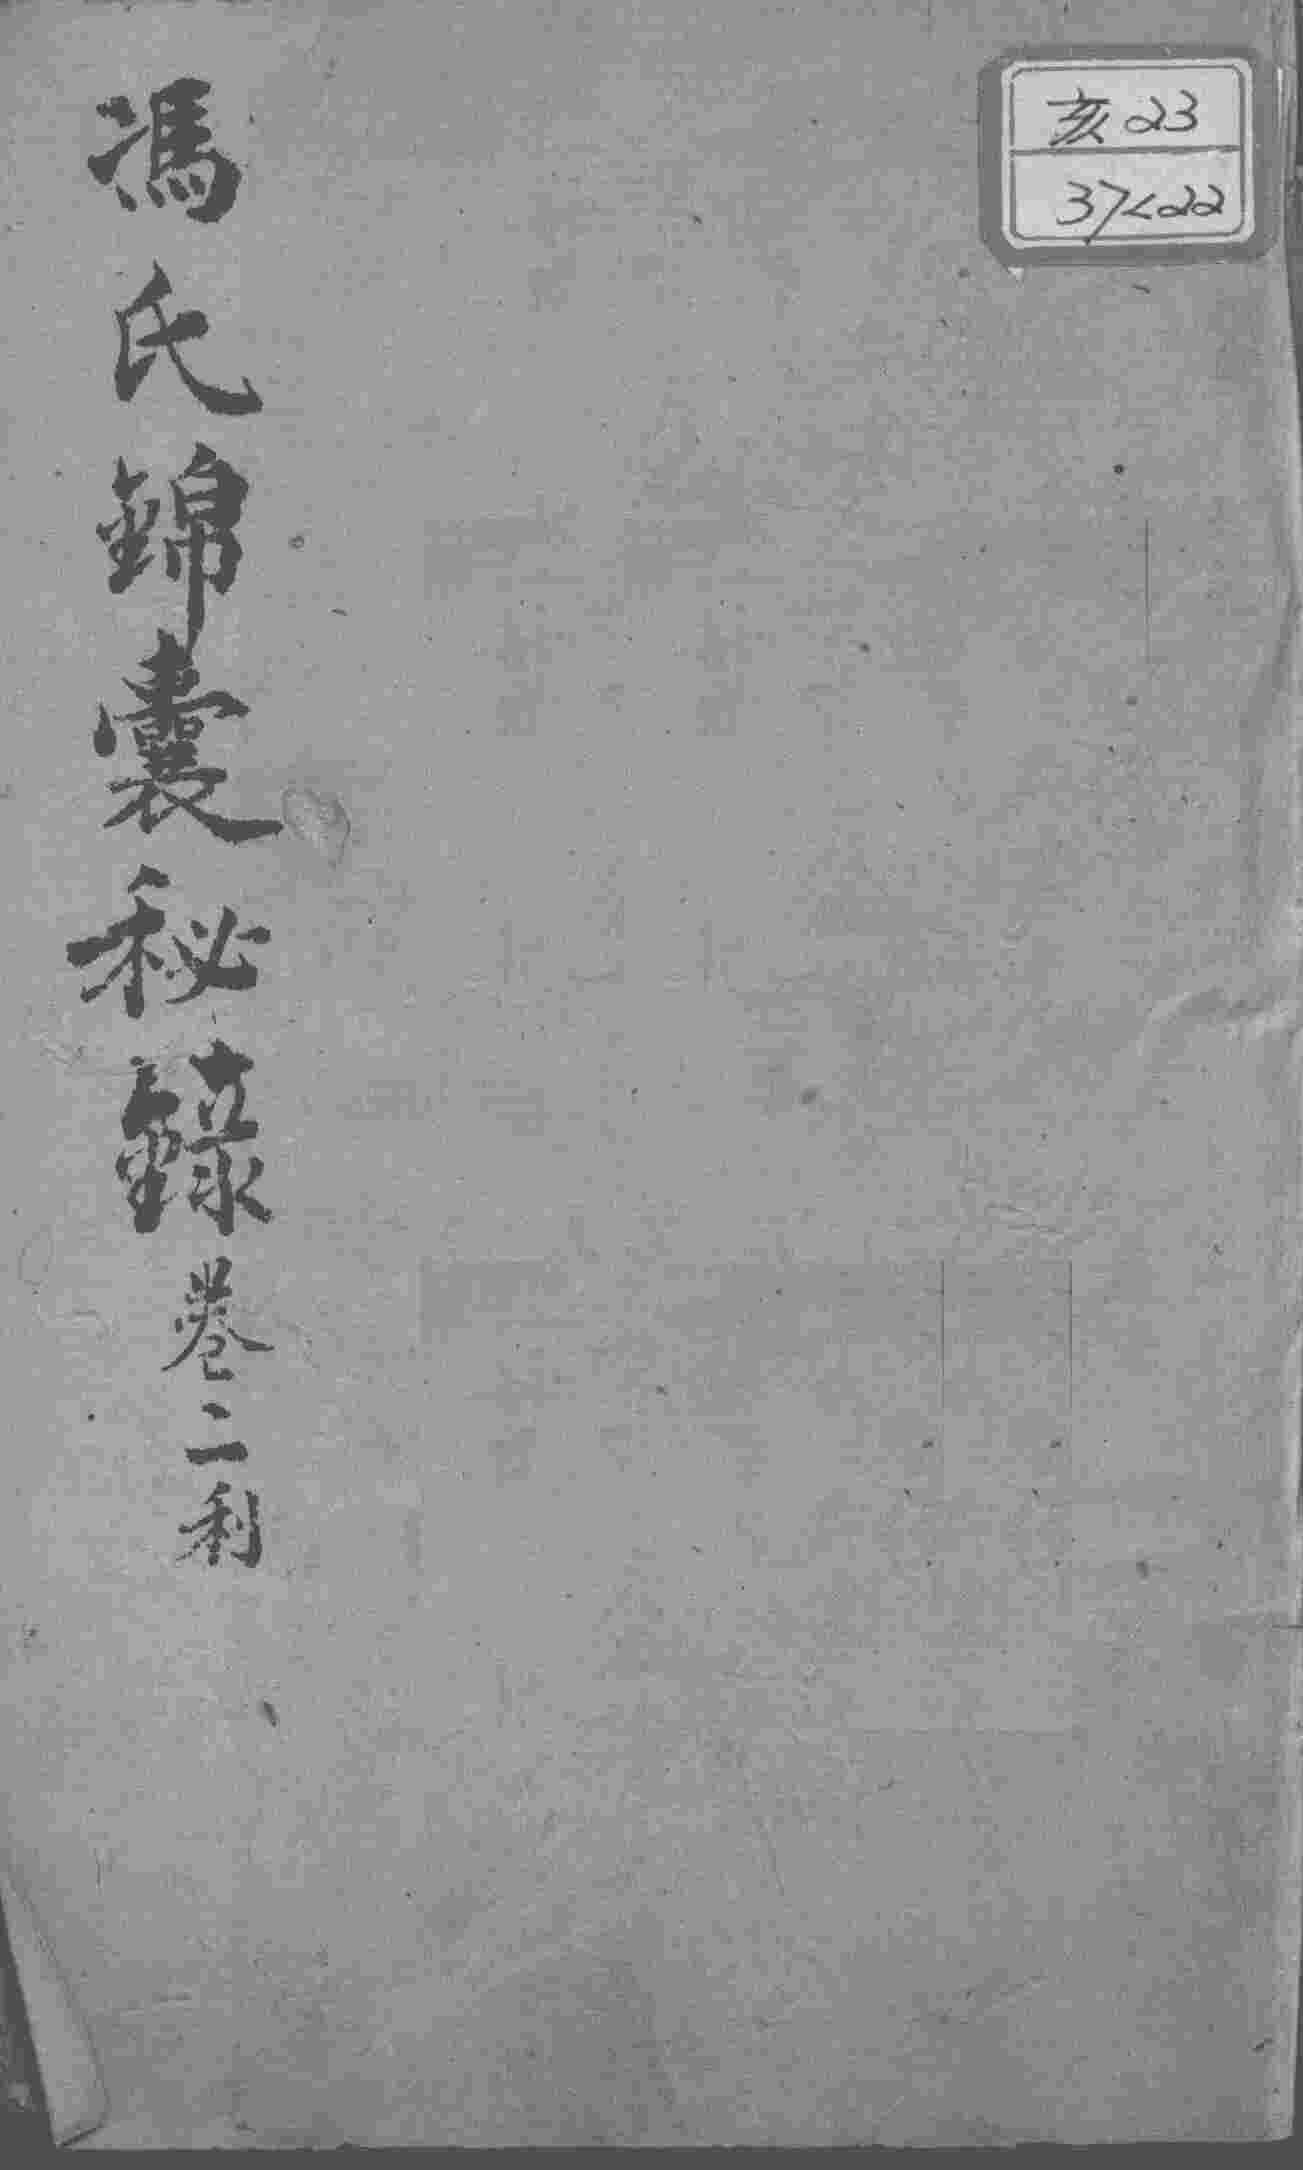 亥23
37<22
馮氏錦囊秘錄 卷二 利